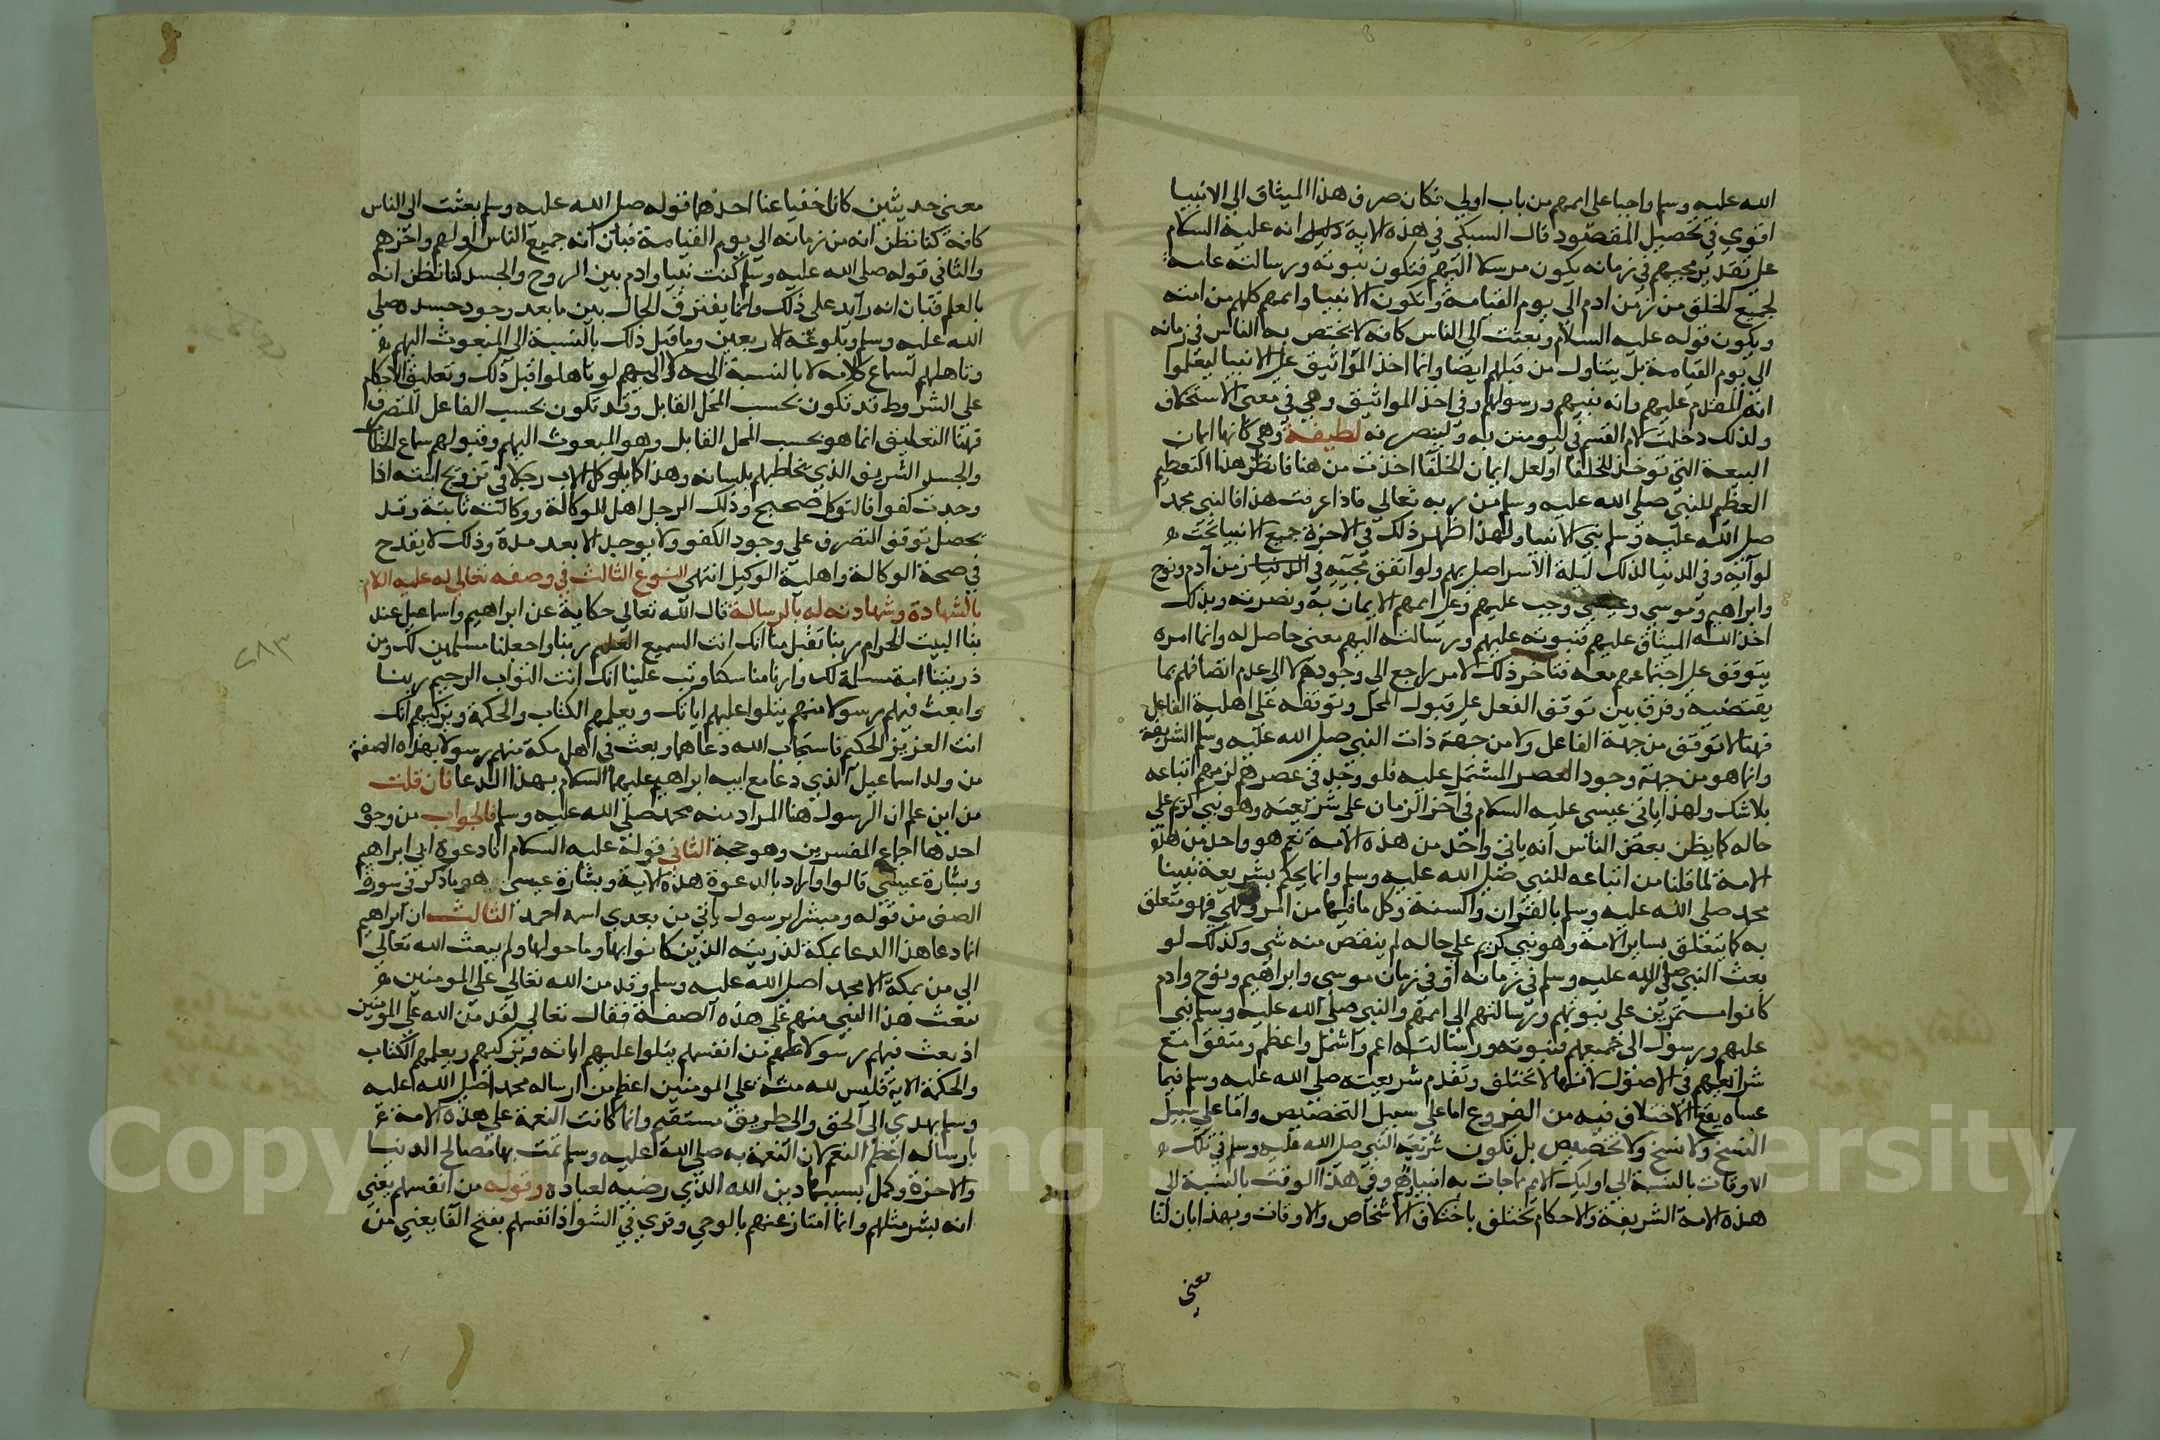 الله عليه وسلم واجبا على اممهم من باب اولى فكان صرف هذا الميثاق الى الانبيا
اقوى في تحصيل المقصود قال السبكي في هذه الاية دليل انه عليه السلام
على تقدير مجيهم في زمانه يكون مرسلا اليهم فتكون نبوته ورسالته عامة
لجميع الخلق من زمن ادم الى يوم القيامة وتكون الانبيا واممهم كلهم من امته
ويكون قوله عليه السلام وبعثت الى الناس كافة لا يختص به الناس في زمانه
الى يوم القيامة بل يتناول من قبلهم ايضا وانما اخذ المواثيق على الانبيا ليعلموا
انه المقدم عليهم وانه نبيهم ورسولهم وفي اخذ المواثيق وهي في معنى الاستخلاف
ولذلك دخلت لام القسم في ليومنن به ولينصرنه لطيفة وهي كانها ايمان
البيعة التي توخذ للخلفا ولعل ايمان الخلفا اخذت من هنا فانظر هذا التعظيم
العظيم للنبي صلى الله عليه وسلم من ربه تعالى فاذا عرفت هذا فالنبي محمد
صلى الله عليه وسلم نبي الانبيا ولهذا ظهر ذلك في الاخرة جميع الانبيا تحت
لوائه وفي الدنيا لذلك ليلة الاسرا صلى بهم ولو اتفق مجيئه في الدنيا زمن آدم ونوح
وابراهيم وموسى وعيسى وجب عليهم وعلى اممهم الايمان به ونصرته وبذلك
اخذ الله الميثاق عليهم فنبوته عليهم ورسالته اليهم معنى حاصل له وانما امره
يتوقف على اجتماعهم معه فتاخر ذلك لامر راجع الى وجودهم لا الى عدم اتصافهم بما
يقتضيه وفرق بين توقف الفعل على قبول المحل وتوقفه على اهلية الفاعل
فهنا لا توقف من جهة الفاعل ولا من جهة ذات النبي صلى الله عليه وسلم الشريفة
وانما هو من جهة وجود العصر المشتمل عليه فلو وجد في عصرهم لزمهم اتباعه
بلا شك ولهذا ياتي عيسى عليه السلام في آخر الزمان على شريعته وهو نبي كريم على
حاله كما يظن بعض الناس انه ياتي واحد من هذه الامة نعم هو واحد من هذه
الامة لما قلنا من اتباعه للنبي صلى الله عليه وسلم وانما يحكم بشريعة نبينا
محمد صلى الله عليه وسلم بالقرآن والسنة وكل ما فيها من امر ونهي فهو متعلق
به كما يتعلق بساير الامة وهو نبي كريم على حاله لم ينقص منه شي وكذلك لو
بعث النبي صلى الله عليه وسلم في زمانه او في زمان موسى وابراهيم ونوح وادم
كانوا مستمرين على نبوتهم ورسالتهم الى اممهم والنبي صلى الله عليه وسلم نبي
عليهم ورسول الى جميعهم فنبوته ورسالته اعم واشمل واعظم ومتفق مع
شرائعهم في الاصول لانها لا تختلف وتقدم شريعته صلى الله عليه وسلم فيما
عساه يقع الاختلاف فيه من الفروع اما على سبيل التخصيص واما على سبيل
النسخ ولا نسخ ولا تخصيص بل تكون شريعة النبي صلى الله عليه وسلم في تلك
الاوقات بالنسبة الى اوليك الامم ما جات به انبياؤهم وفي هذا الوقت بالنسبة الى
هذه الامة الشريفة والاحكام تختلف باختلاف الاشخاص والاوقات وبهذا بان لنا
معنى
معنى حديثين كانا خفيا عنا احدهما قوله صلى الله عليه وسلم بعثت الى الناس
كافة كنا نظن انه من زمانه الى يوم القيامة فبان انه جميع الناس اولهم واخرهم
والثاني قوله صلى الله عليه وسلم كنت نبيا وادم بين الروح والجسد كنا نظن انه
بالعلم فبان انه زايد على ذلك وانما يفترق الحال بين ما بعد وجود جسده صلى
الله عليه وسلم وبلوغه الاربعين وما قبل ذلك بالنسبة الى المبعوث اليهم
وتاهلهم لسماع كلامه لا بالنسبة اليه ولا اليهم لو تاهلوا قبل ذلك وتعليق الاحكام
على الشروط قد تكون بحسب المحل القابل وقد تكون بحسب الفاعل المتصرف
فهنا التعليق انما هو بحسب المحل القابل وهو المبعوث اليهم وقبولهم سماع الخطاب
والجسد الشريف الذي يخاطبهم بلسانه وهذا كما يوكل الاب رجلا في تزويج ابنته اذا
وجدت كفوا فالتوكل صحيح وذلك الرجل اهل للوكالة ووكالته ثابتة وقد
يحصل توقف التصرف على وجود الكفو ولا يوجد الا بعد مدة وذلك لا يقدح
في صحة الوكالة واهلية الوكيل انتهى النوع الثالث في وصفه تعالى له عليه السلام
بالشهادة وشهادته له بالرسالة قال الله تعالى حكاية عن ابراهيم واسماعيل عند
بنا البيت الحرام ربنا تقبل منا انك انت السميع العليم ربنا واجعلنا مسلمين لك ومن
ذريتنا امة مسلمة لك وارنا مناسكنا وتب علينا انك انت التواب الرحيم ربنا
وابعث فيهم رسولا منهم يتلوا عليهم اياتك ويعلمهم الكتاب والحكمة ويزكيهم انك
انت العزيز الحكيم فاستجاب الله دعاهما وبعث في اهل مكة منهم رسولا بهذه الصفة
من ولد اسماعيل الذي دعا مع ابيه ابراهيم عليهما السلام بهذا الدعا فان قلت
من اين علم ان الرسول هنا المراد منه محمد صلى الله عليه وسلم فالجواب من وجوه
احدها اجماع المفسرين وهو حجة الثاني قوله عليه السلام انا دعوة ابي ابراهيم
وبشارة عيسى قالوا واراد بالدعوة هذه الاية وبشارة عيسى هو ما ذكر في سورة
الصف من قوله ومبشرا برسول ياتي من بعدي اسمه احمد الثالث ان ابراهيم
انما دعا هذا الدعا بمكة لذريته الذين كانوا بها وما حولها ولم يبعث الله تعالى
الى من بمكة الا محمدا صلى الله عليه وسلم وقد من الله تعالى على المومنين
ببعث هذا النبي منهم على هذه الصفة فقال تعالى لقد من الله على المومنين
اذ بعث فيهم رسولا من انفسهم يتلوا عليهم اياته ويزكيهم ويعلمهم الكتاب
والحكمة الاية فليس لله منة على المومنين اعظم من ارساله محمدا صلى الله عليه
وسلم يهدي الى الحق والى طريق مستقيم وانما كانت النعمة على هذه الامة
بارساله اعظم النعم لان النعمة به صلى الله عليه وسلم تمت بها مصالح الدنيا
والاخرة وكمل بسببها دين الله الذي رضيه لعباده وقوله من انفسهم يعني
انه بشر مثلهم وانما امتاز عنهم بالوحي وقري في الشواذ انفسهم بفتح الفا يعني من
٢٨٣
Copyright © King Saud University